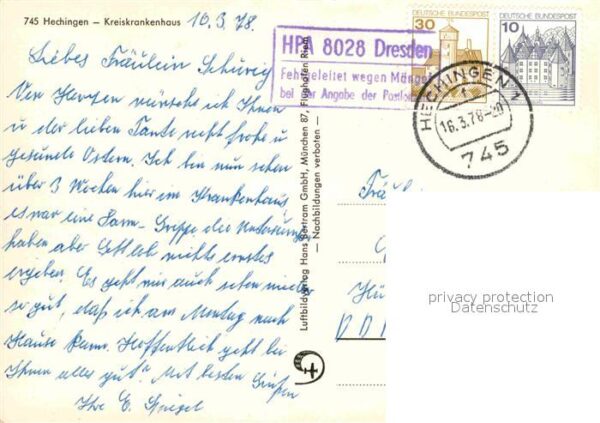 745 Hechingen – Kreiskrankenhaus
16.3.78.
Liebes Fräulein Schurig
Von Herzen wünsche ich Ihnen
u der lieben Tante recht frohe u
gesunde Ostern. Ich bin nun schon
über 3 Wochen hier im Krankenhaus
es war eine Darm-Grippe die Untersuchungen
haben aber Gottlob nichts ernstes
ergeben. Es geht mir auch schon wieder
so gut, daß ich am Montag nach
Hause kann. Hoffentlich geht es bei
Ihnen alles gut. Mit besten Grüßen
Ihre E. Spiegel
HPA 8028 Dresden
Fehlgeleitet wegen Mängel
bei der Angabe der Postleit
DEUTSCHE BUNDESPOST
30
DEUTSCHE BUNDESPOST
10
HECHINGEN 1
16.3.78-20
745
Luftbildverlag Hans Bertram GmbH, München 87, Flughafen Riem
— Nachbildungen verboten —
Frä
Hü
DDR
privacy protection
Datenschutz